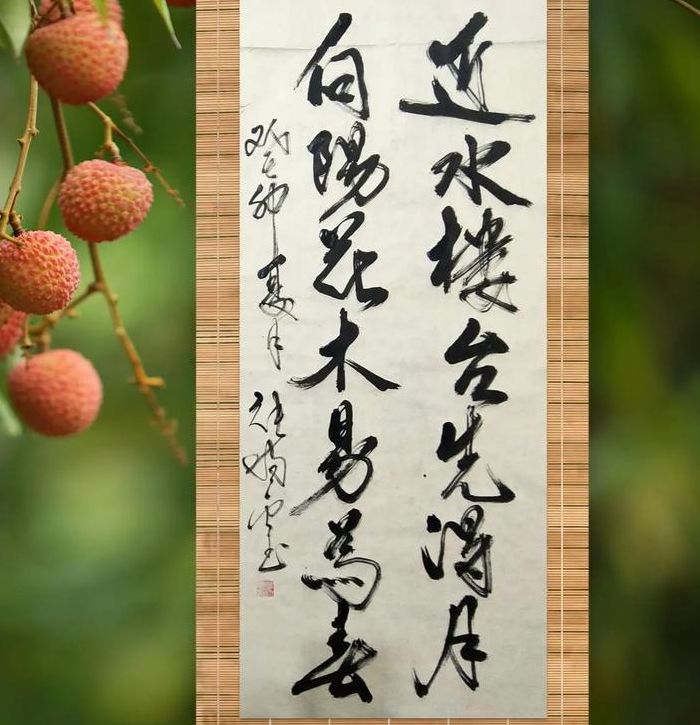 近水楼台先得月
向陽花木易為春
癸卯夏月